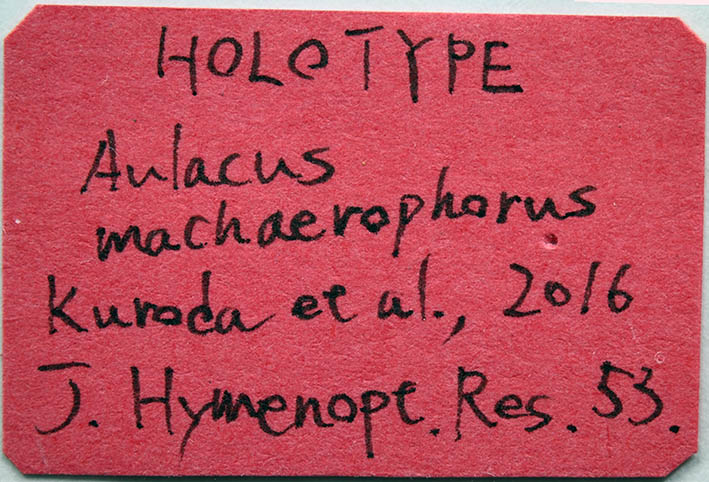 HOLOTYPE
Aulacus
machaerophorus
Kuroda et al., 2016
J. Hymenopt. Res. 53.